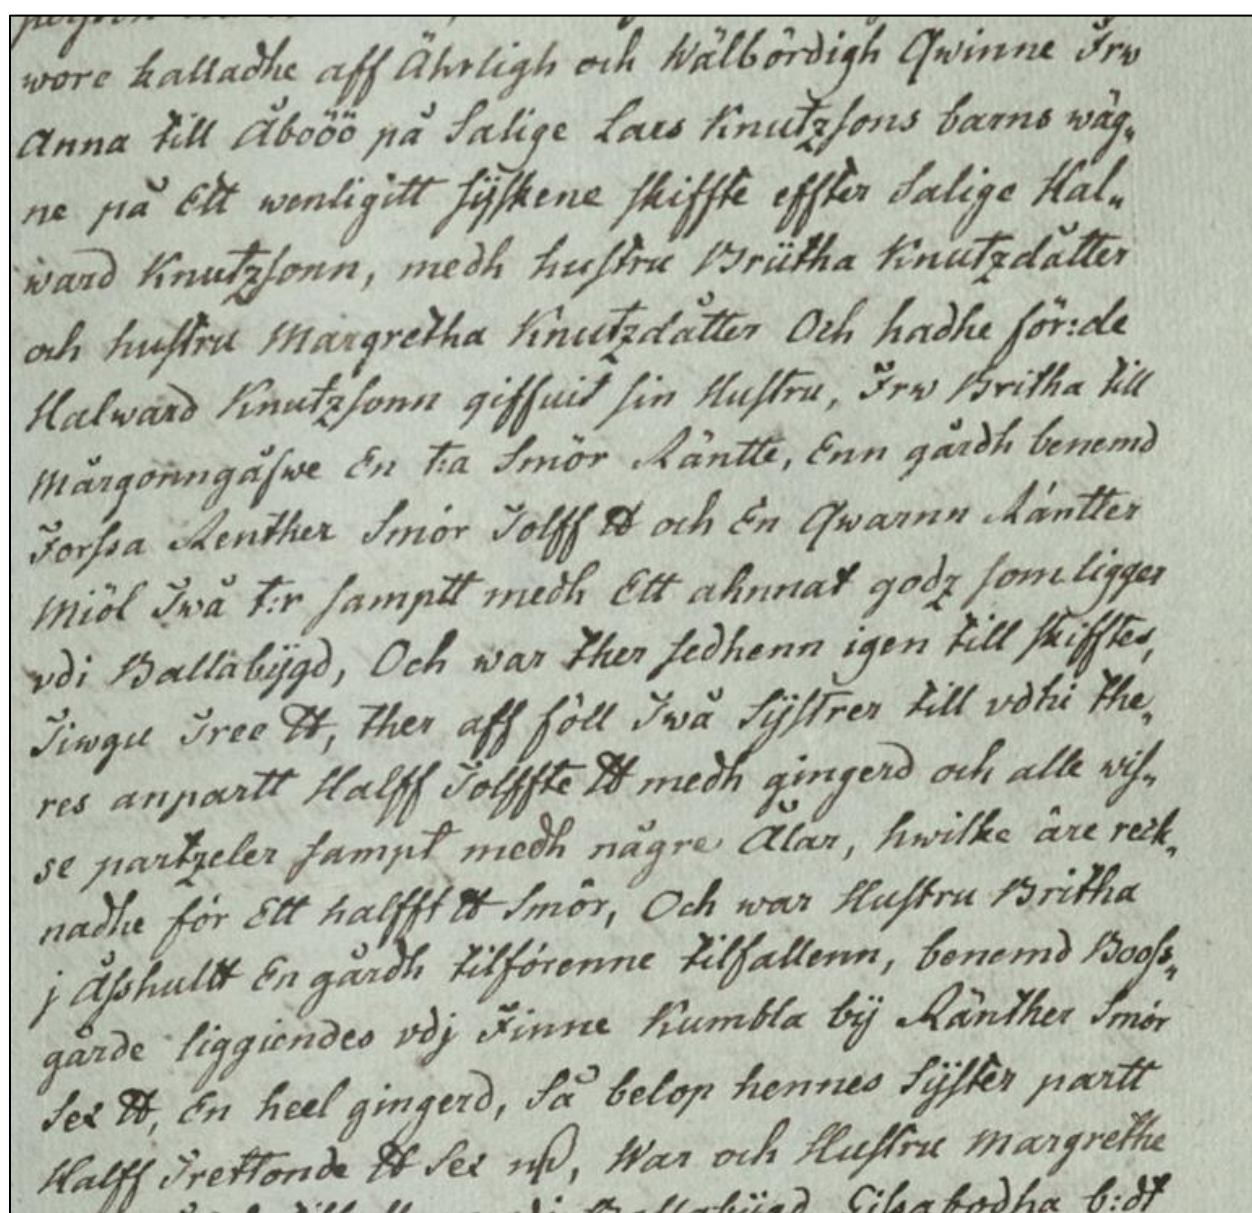 wore kalladhe aff Ährligh och Wälbördigh Qwinne Frw
Anna till Åboöö på Salige Lars Knutzsons barns wäg„
ne på Ett wenligitt syskene skiffte effter Salige Hal„
ward Knutzsonn, medh hustru Brütha Knutzdåtter
och hustru Margretha Knutzdåtter Och hadhe för:de
Halward Knutzsonn giffuit sin Hustru, Frw Britha till
Mårgonngåfwe En t:a Smör Räntte, Enn gårdh benemd
Forssa Renther Smör Tolff ℔ och En Qwarnn Räntter
Miöl Twå t:r samptt medh Ett ahnnat godz som ligger
vdi Ballabÿgd, Och war ther sedhenn igen till skifftes,
Tiwgu Tree ℔, ther aff föll Twå Sÿstrer till vdhi the„
res anpartt Halff Tolffte ℔ medh gingerd och alle wis„
se partzeler sampt medh någre Ålar, hwilke äre reck„
nadhe för Ett halfft ℔ Smör, Och war Hustru Britha
j Åsshultt En gårdh tilförenne tilfallenn, benemd Booss„
gårde liggiendes vdj Finne Kumbla bÿ Ränther Smör
Sex ℔, En heel gingerd, Så belop hennes Sÿster partt
Halff Trettonde ℔ Sex mk, War och Hustru Margrethe
Ballabÿgd b:dt